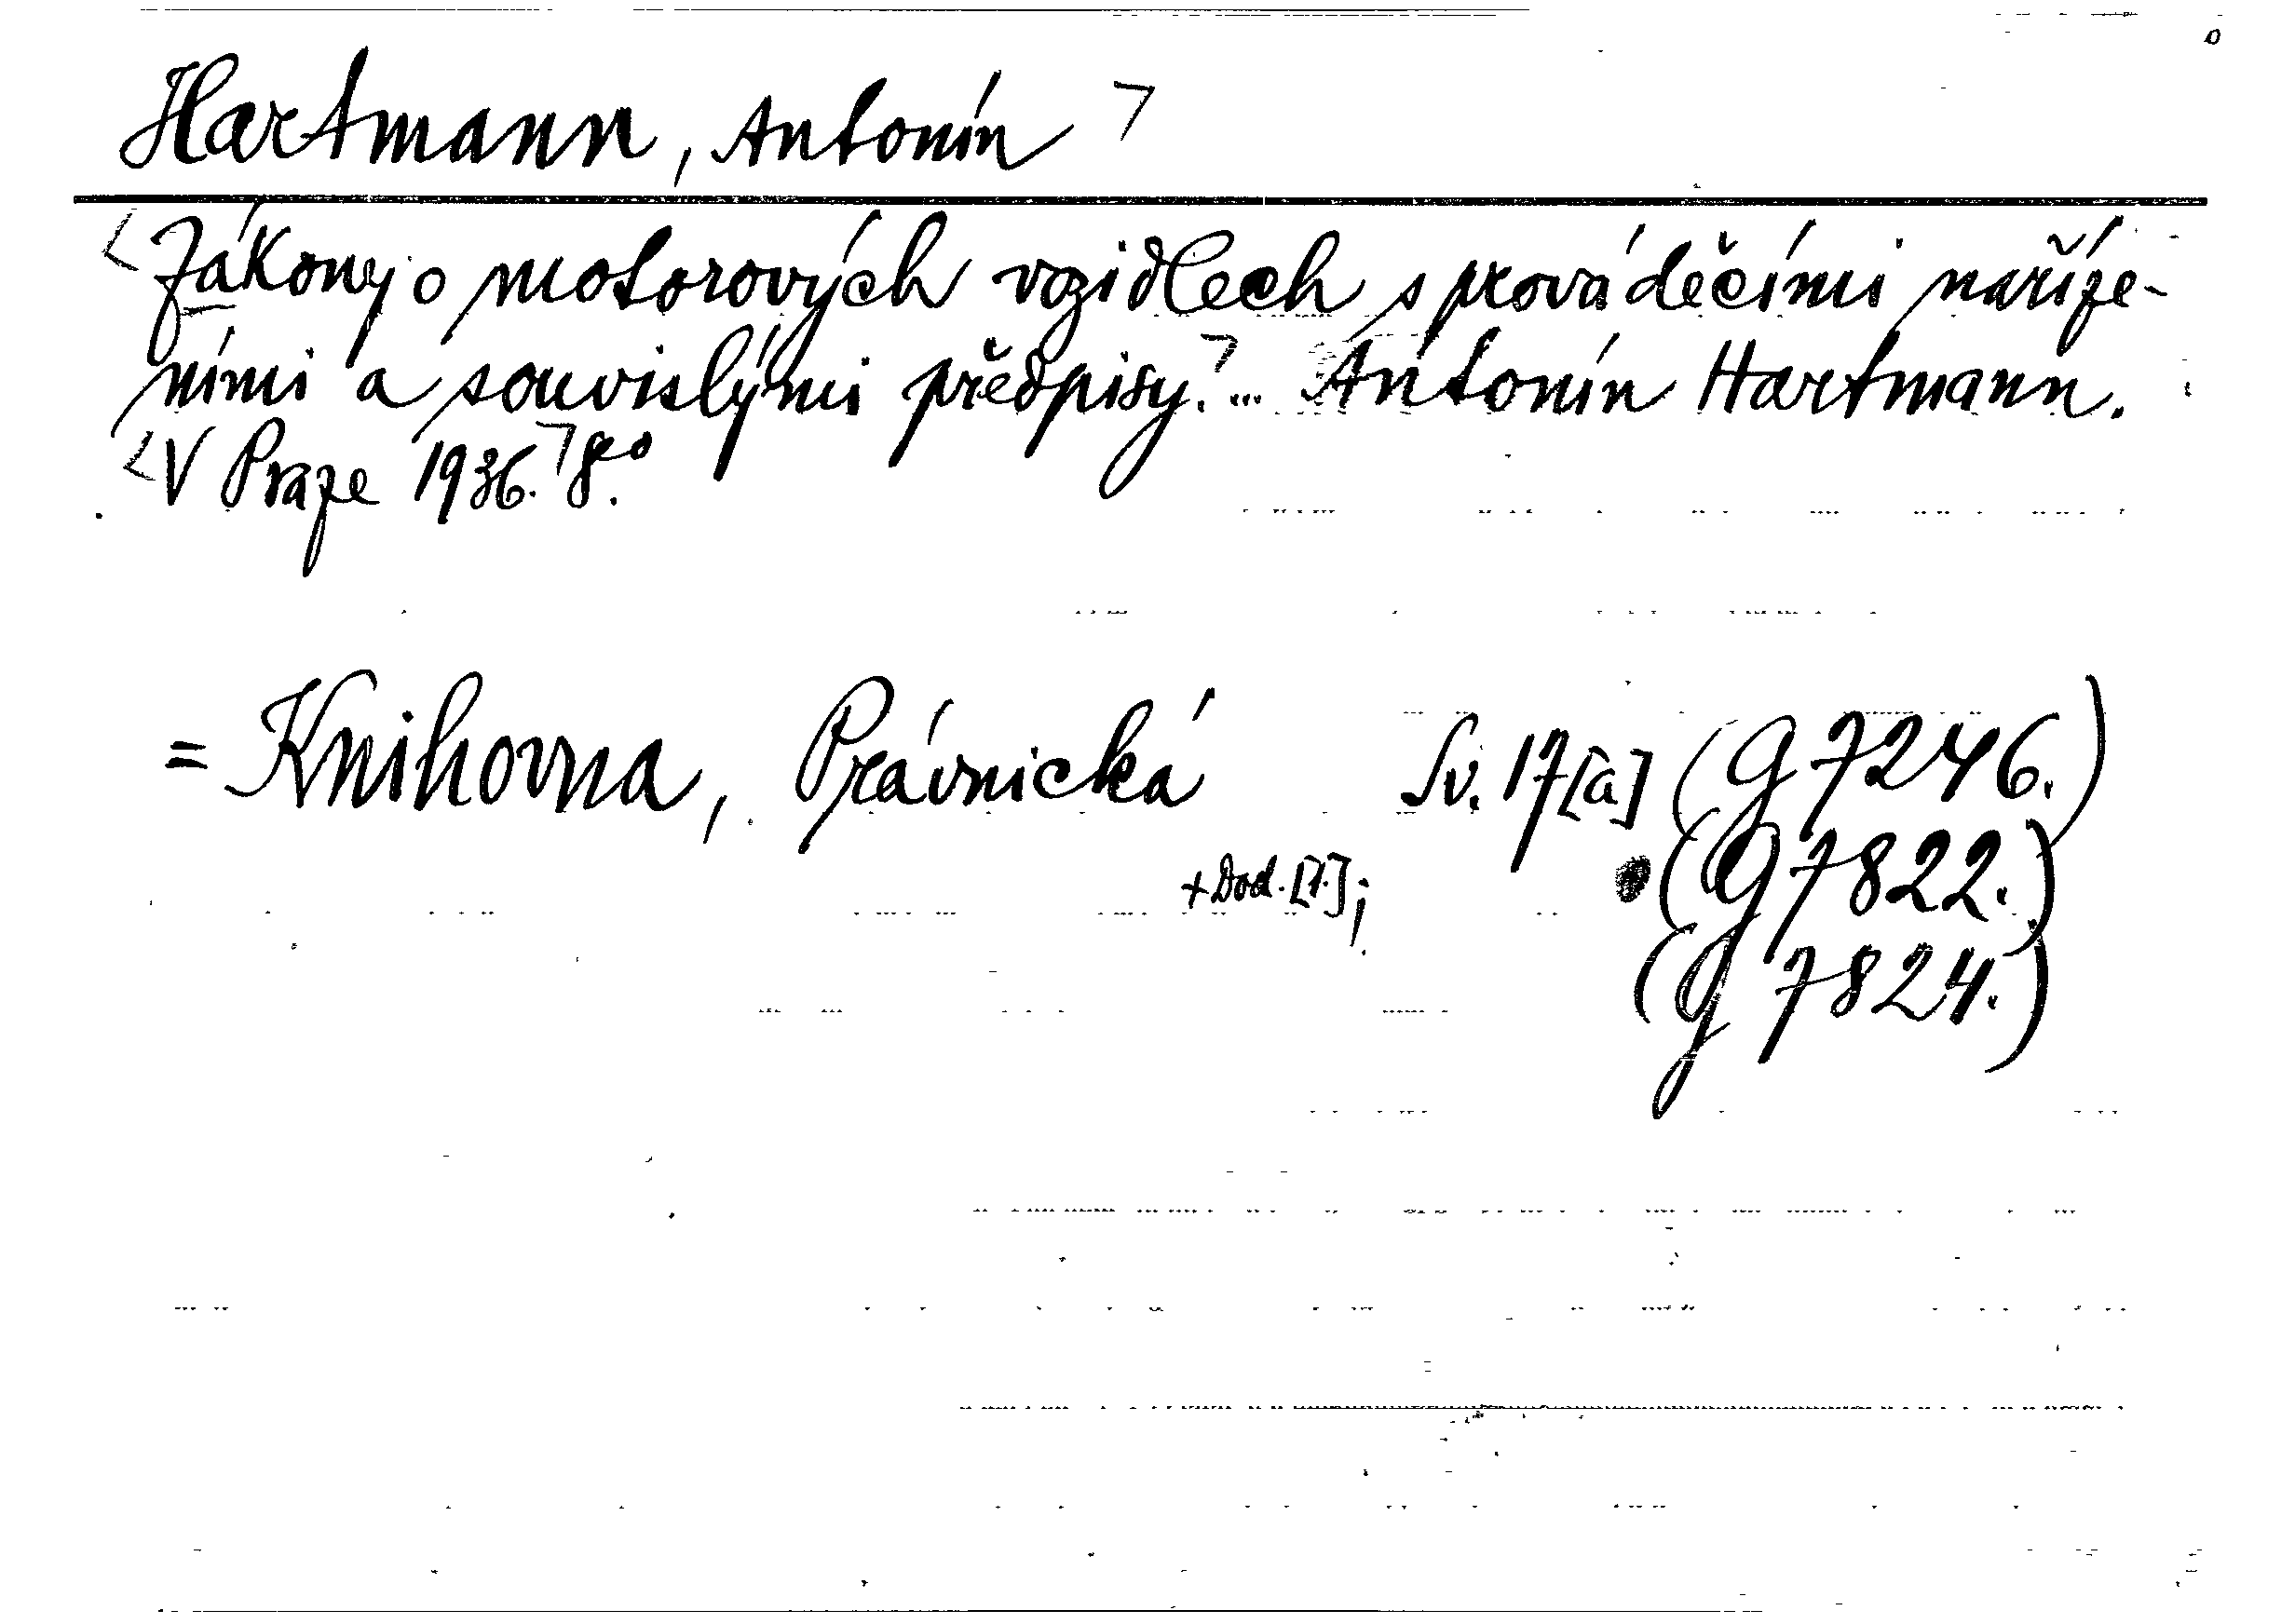 Hartmann, Antonín ⌝
<Zákony o motorových vozidlech s prováděcími naříze-
ními a souvislými předpisy.⌝... Antonín Hartmann.
<V Praze 1936.⌝ 8°.
= Knihovna, Právnická Sv. 17[a] (G 7246.)
+ Dod. [1.]; (G 7822.)
(G 7824.)